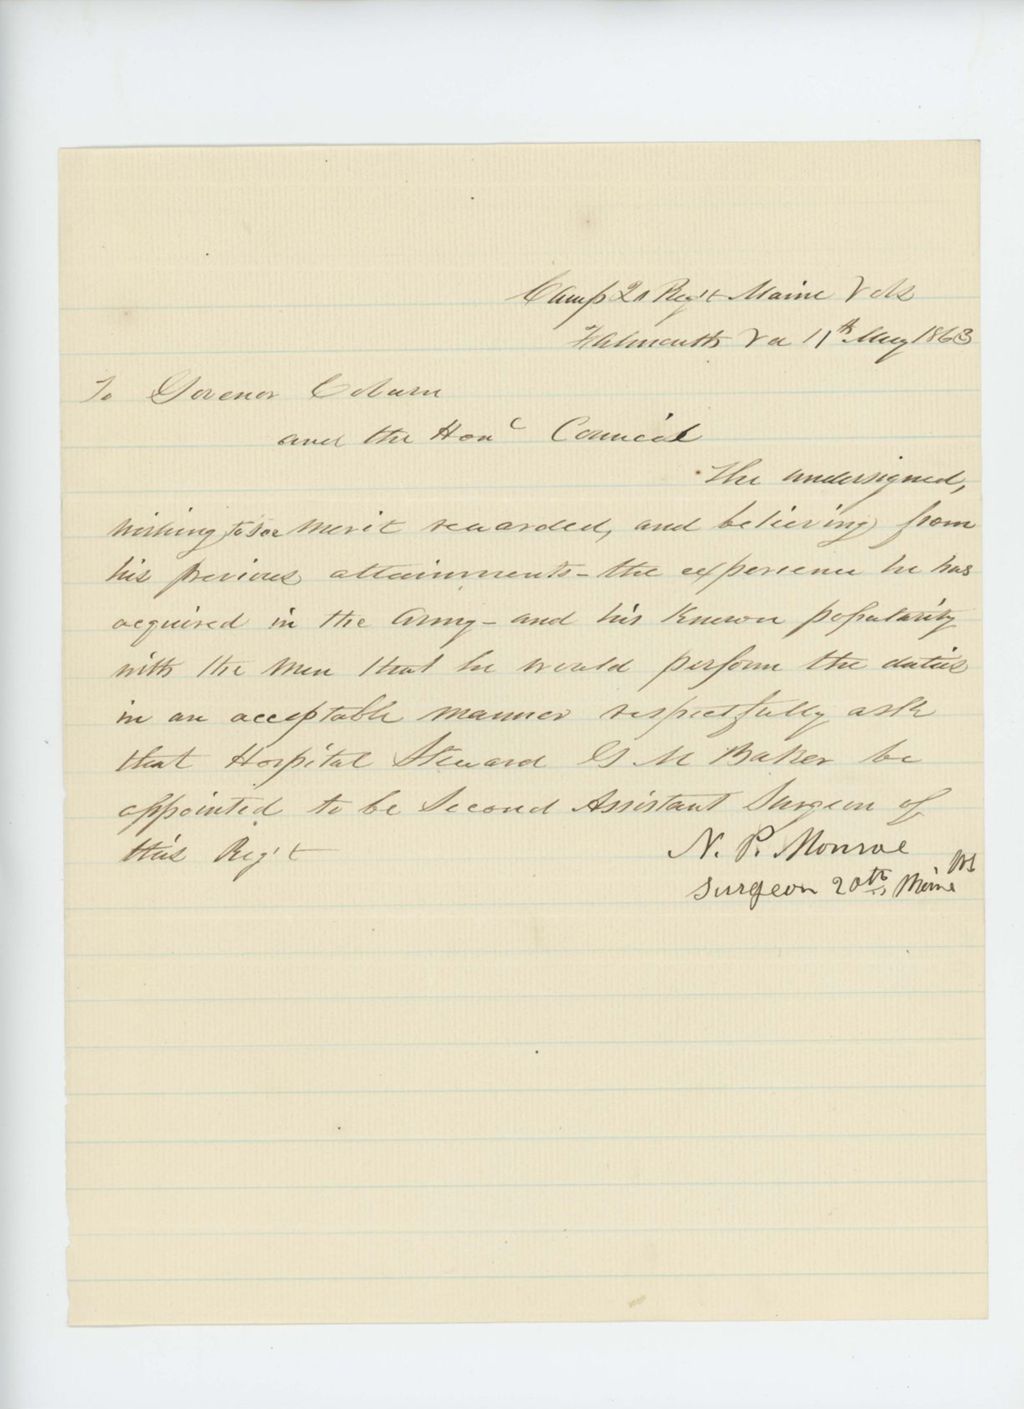 Camp 20 Reg't Maine Vols
Falmouth Va 11th May 1863
To Govenor Coburn
and the Honc Council
The undersigned,
wishing to see merit rewarded, and believing from
his previous attainments - the experience he has
acquired in the Army - and his known popularity
with the men that he would perform the duties
in an acceptable manner respectfully ask
that Hospital Steward G M Baker be
appointed to be Second Assistant Surgeon of
this Reg't
N. P. Monroe
Surgeon 20th Maine